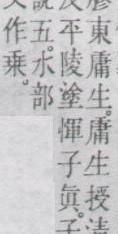 膠東庸生。庸生授清
平陵塗惲子眞。子
說五。水部
作乘。